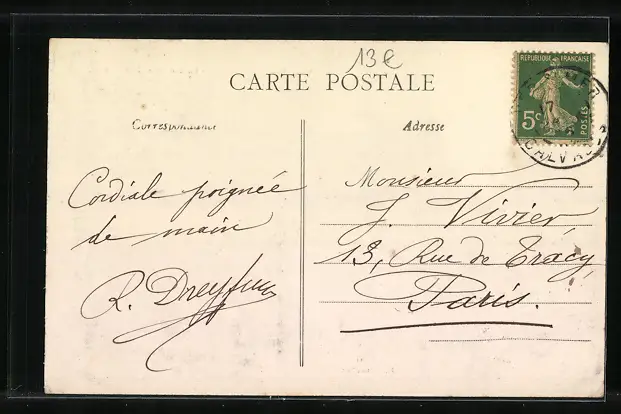 13€
CARTE POSTALE
Correspondance
Adresse
REPUBLIQUE FRANÇAISE
5c
POSTES
CALVADOS
Cordiale poignée
de main
R. Dreyfus
Monsieur
J. Vivier,
13, Rue de Tracy,
Paris.